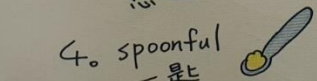 4。spoonful
一匙